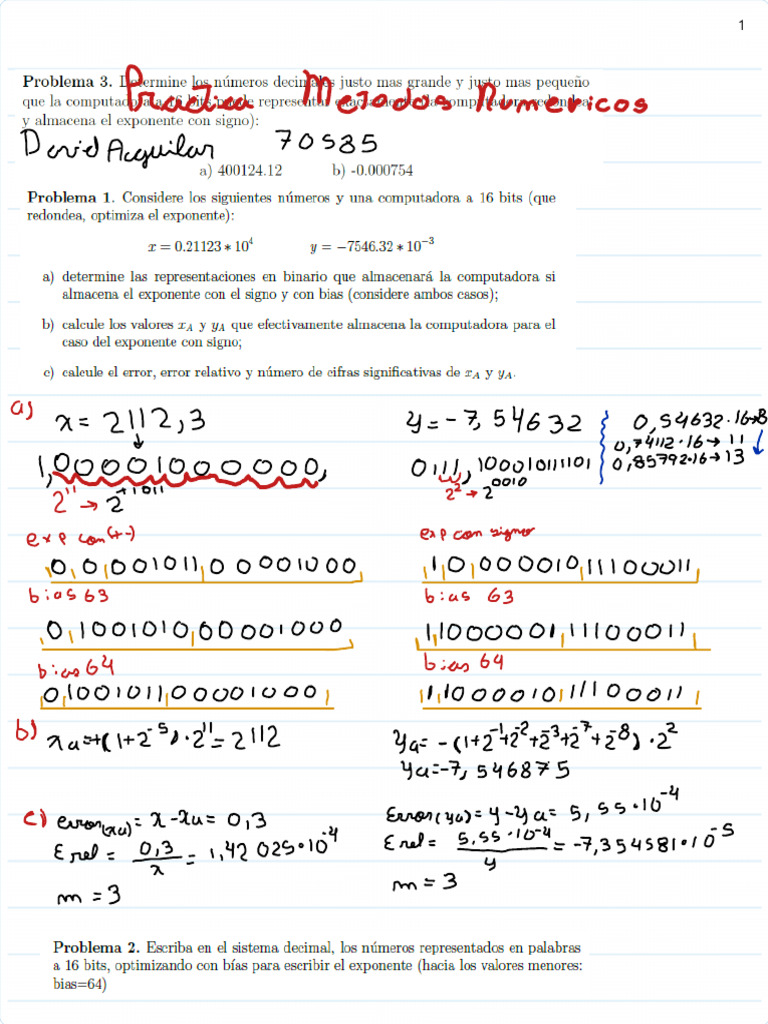 1
Problema 3. Determine los números decimales justo mas grande y justo mas pequeño
Practica Metodos Numericos
que la computadora a 16 bits puede representar exactamente (la computadora redondea
y almacena el exponente con signo):
David Aguilar 70585
a) 400124.12 b) -0.000754
Problema 1. Considere los siguientes números y una computadora a 16 bits (que
redondea, optimiza el exponente):
x = 0.21123 * 10⁴ y = −7546.32 * 10⁻³
a) determine las representaciones en binario que almacenará la computadora si
almacena el exponente con el signo y con bias (considere ambos casos);
b) calcule los valores x_A y y_A que efectivamente almacena la computadora para el
caso del exponente con signo;
c) calcule el error, error relativo y número de cifras significativas de x_A y y_A.
a) x = 2112,3 y = -7,54632 0,54632·16→8
0,74112·16→11
1,00001000000, 0111,100010111101 0,85792·16→13
2¹¹ → 2^+1011 2² → 2^0010
exp con(+-) exp con signo
0,0,001011,0 00001000 1,0,000010,11100011
bias 63 bias 63
0,1001010,00001000 1,1000001,11100011
bias 64 bias 64
0,1001011,00001000 1,1000010,11100011
b) xa=+(1+2⁻⁵)·2¹¹=2112 ya= -(1+2⁻¹+2⁻²+2⁻³+2⁻⁷+2⁻⁸)·2²
ya=-7,546875
c) error(xa)= x-xa= 0,3 Error(ya)= y-ya= 5,55·10⁻⁴
Erel = 0,3/x = 1,42025·10⁻⁴ Erel= 5,55·10⁻⁴/y = -7,354581·10⁻⁵
m = 3 m = 3
Problema 2. Escriba en el sistema decimal, los números representados en palabras
a 16 bits, optimizando con bías para escribir el exponente (hacia los valores menores:
bias=64)